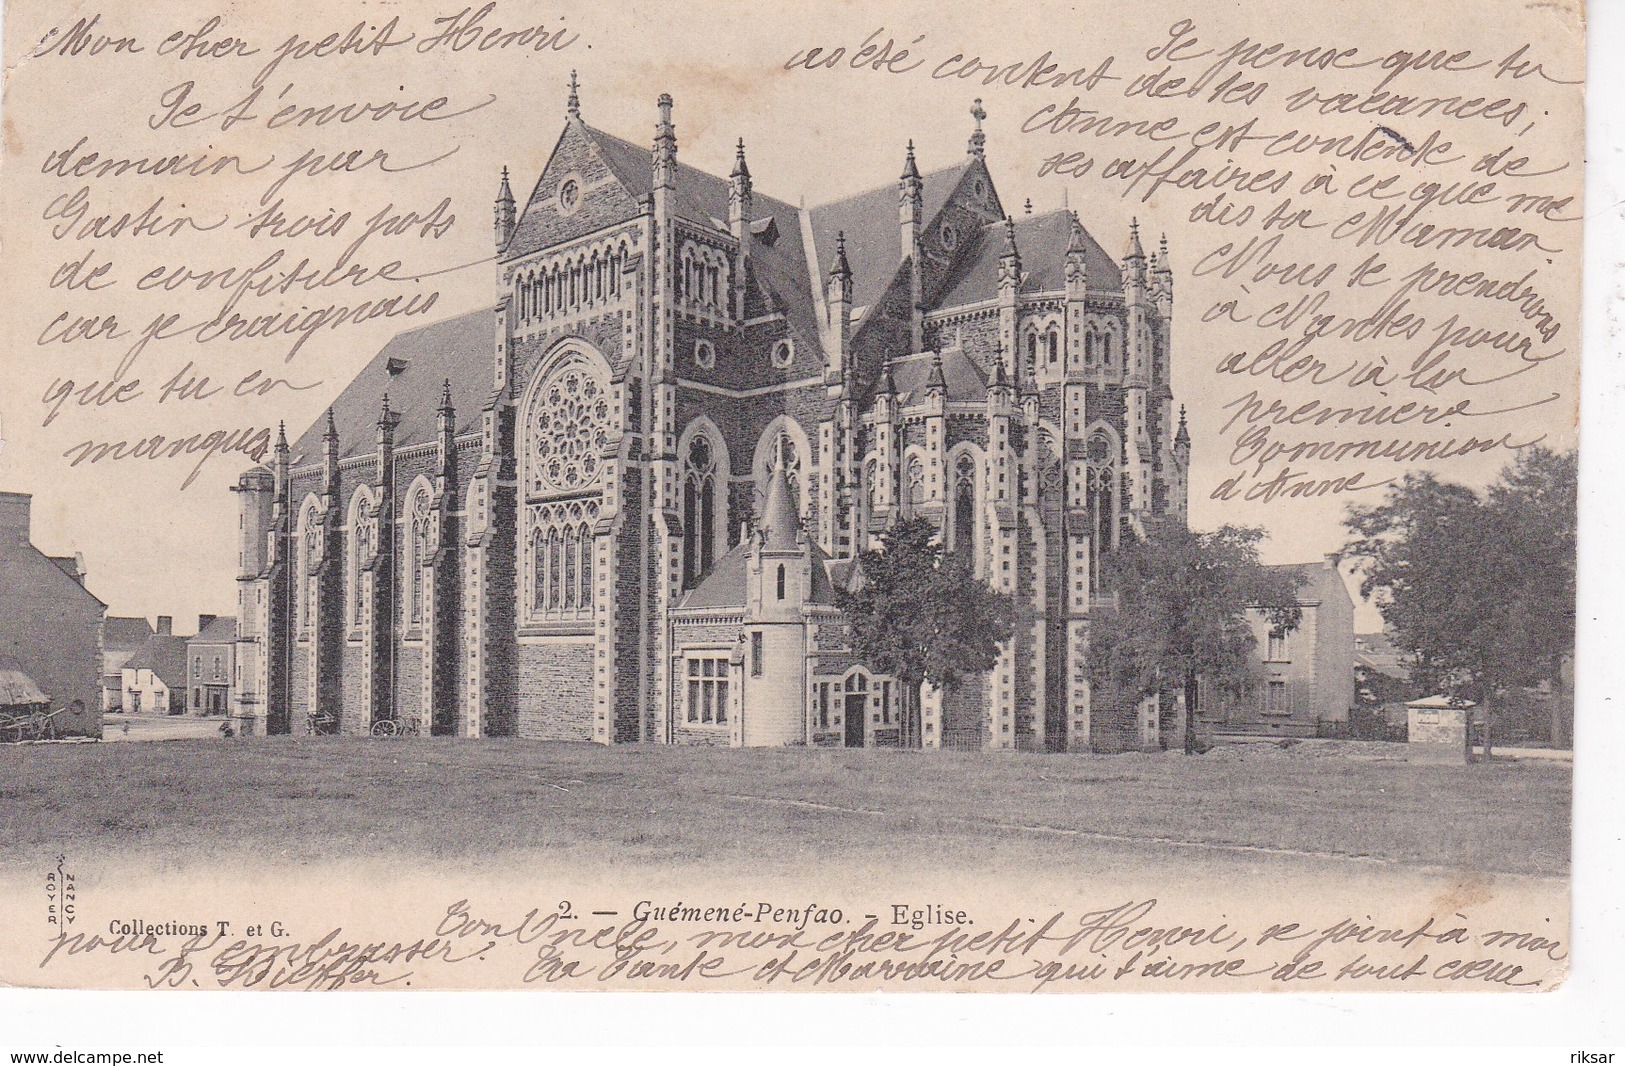 Mon cher petit Henri.
Je t'envoie
demain par
Gastin trois pots
de confiture
car je craignais
que tu en
manques
Je pense que tu
as été content de tes vacances;
Anne est contente de
ses affaires à ce que me
dis ta Maman
Nous te prendrons
à Nantes pour
aller à la
première
Communion
d'Anne
2. — Guémené-Penfao. - Eglise.
ROYER NANCY
Collections T. et G.
Ton Oncle, mon cher petit Henri, se joint à moi
pour t'embrasser.
Ta Tante et Marraine qui t'aime de tout cœur
B.
www.delcampe.net
riksar